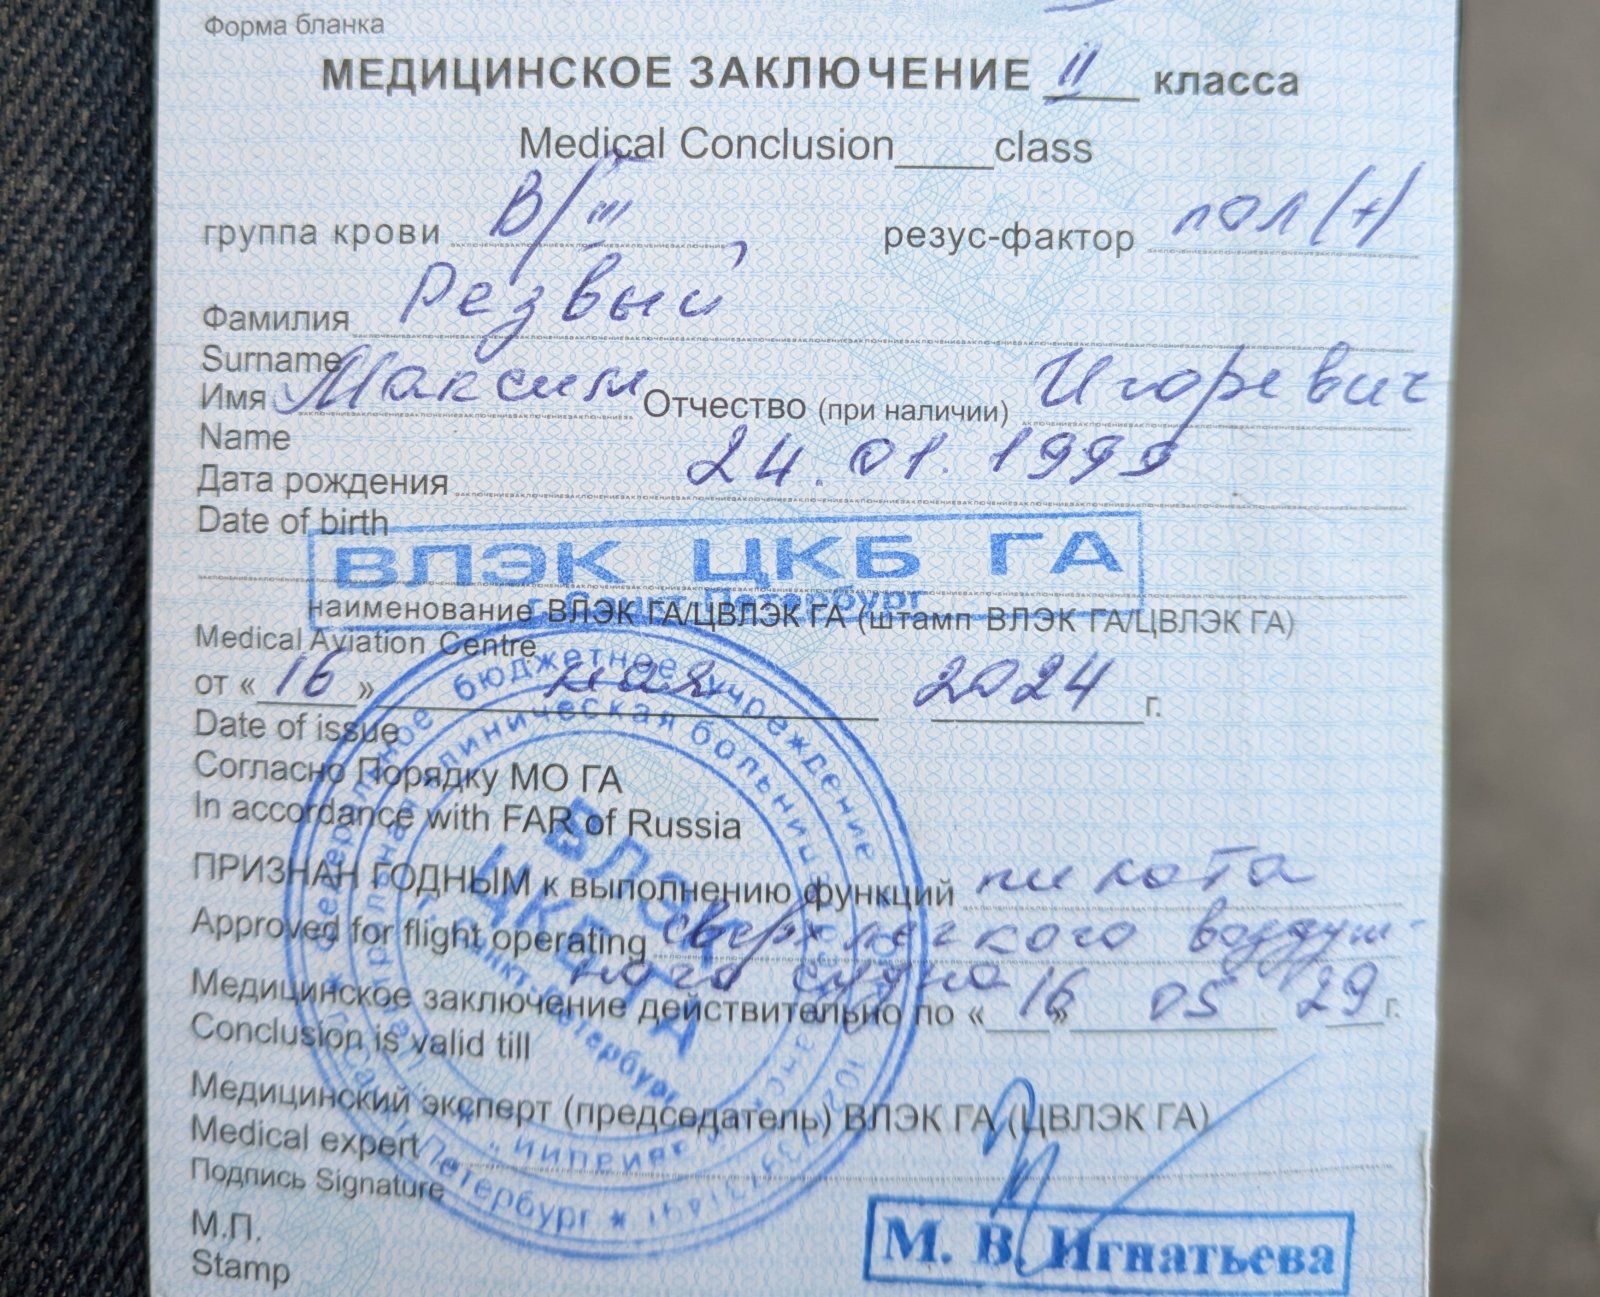 Форма бланка
МЕДИЦИНСКОЕ ЗАКЛЮЧЕНИЕ II класса
Medical Conclusion_____class
группа крови B/III резус-фактор пол(+)
Фамилия Резвый
Surname
Имя Максим Отчество (при наличии) Игоревич
Name
Дата рождения 24.01.1999
Date of birth
ВЛЭК ЦКБ ГА
г. Санкт-Петербург
наименование ВЛЭК ГА/ЦВЛЭК ГА (штамп ВЛЭК ГА/ЦВЛЭК ГА)
Medical Aviation Centre
от «16» мая 2024 г.
Date of issue
Согласно Порядку МО ГА
In accordance with FAR of Russia
ПРИЗНАН ГОДНЫМ к выполнению функций пилота
Approved for flight operating сверхлегкого воздуш-
ного судна
Медицинское заключение действительно по «16» 05 29 г.
Conclusion is valid till
Медицинский эксперт (председатель) ВЛЭК ГА (ЦВЛЭК ГА)
Medical expert
Подпись Signature
М.П.
Stamp
М. В. Игнатьева
бюджетное учреждение
клиническая больница
ВЛЭК
ЦКБ ГА
г. Санкт-Петербург